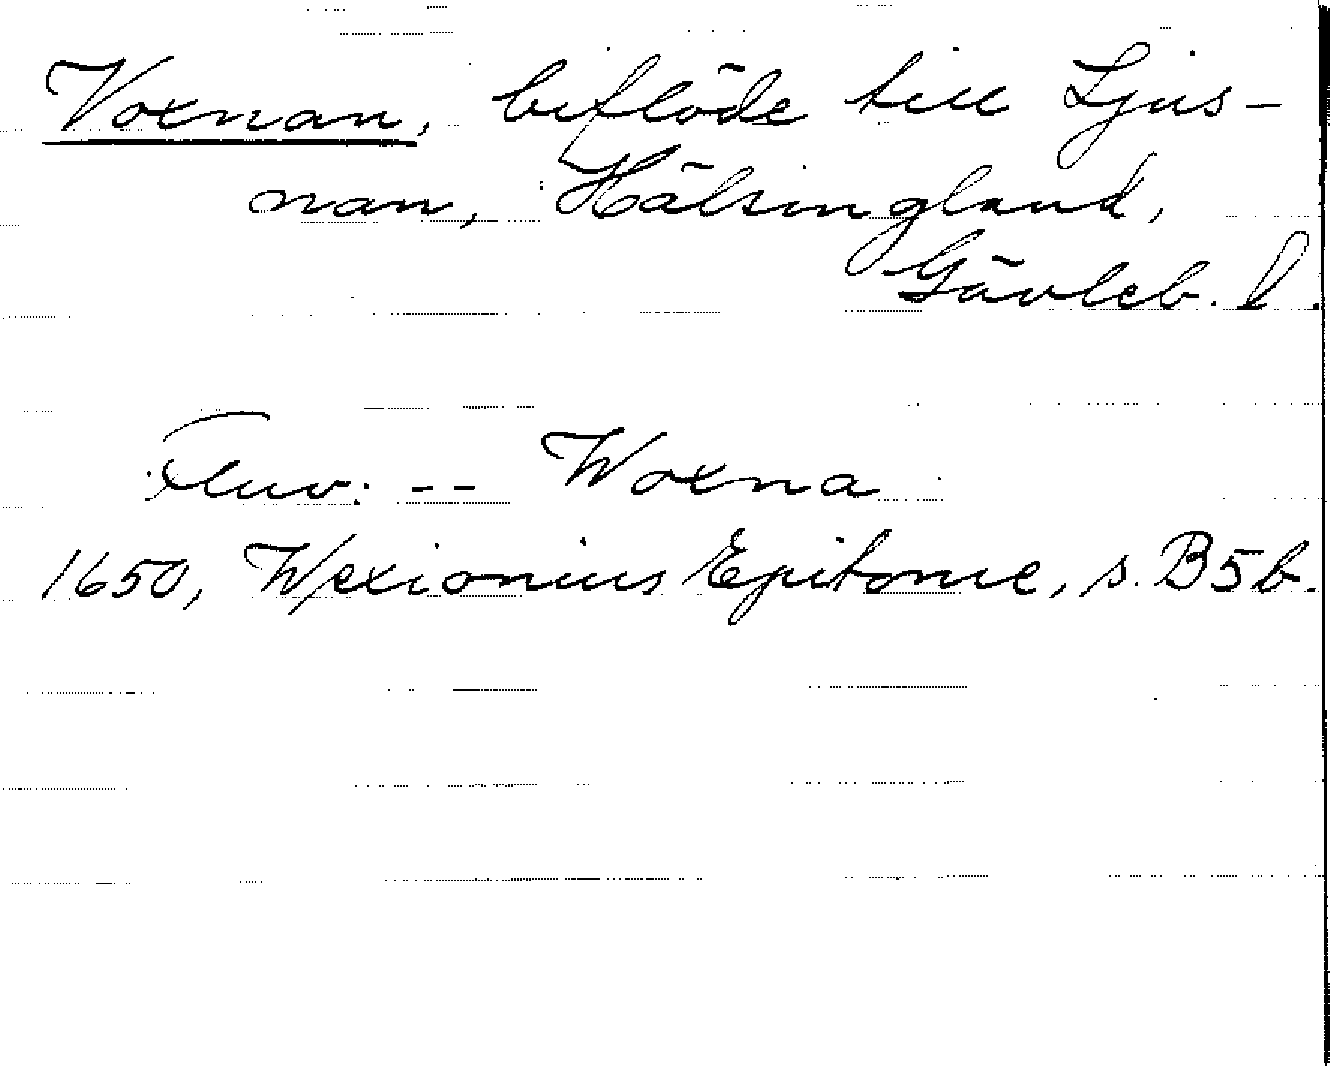 Voxnan, biflöde till Ljus-
nan, Hälsingland,
Gävleb. l.
Fluv. -- Woxna
1650, Wexionius Epitome, s. B5b.